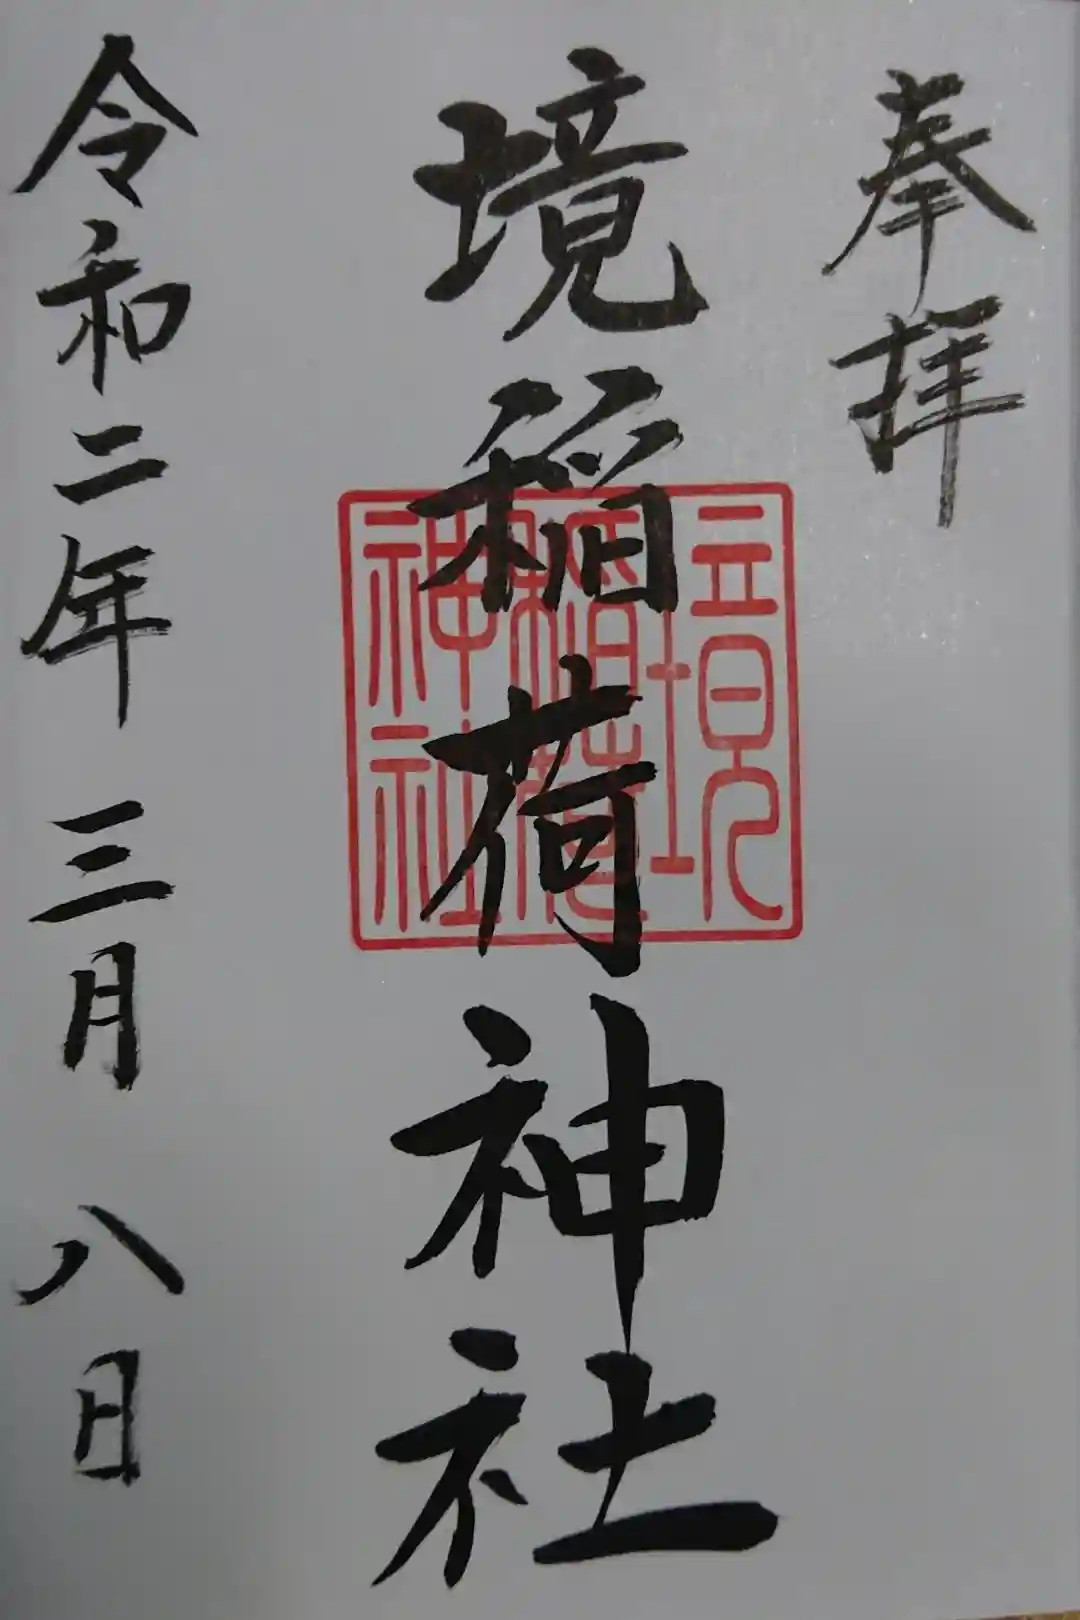 奉拝
境稲荷神社
境
稲荷
神社
令和二年 三月 八日